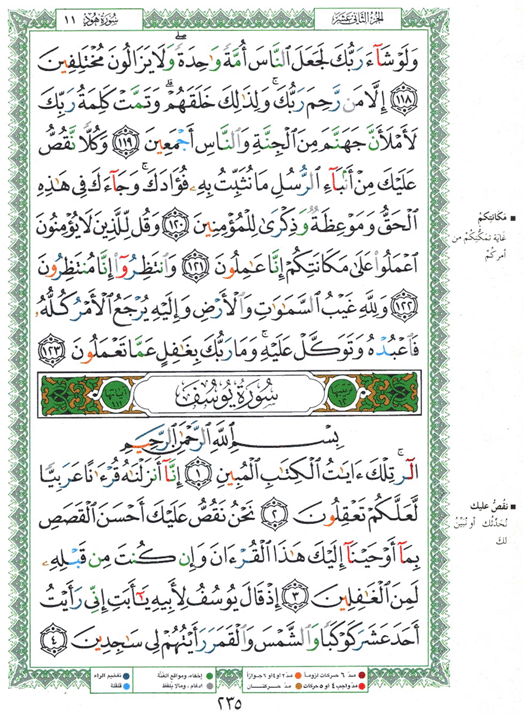 الجزء الثاني عشر
سورة هود ١١
وَلَوْ شَآءَ رَبُّكَ لَجَعَلَ ٱلنَّاسَ أُمَّةً وَٰحِدَةً ۖ وَلَا يَزَالُونَ مُخْتَلِفِينَ
١١٨ إِلَّا مَن رَّحِمَ رَبُّكَ ۚ وَلِذَٰلِكَ خَلَقَهُمْ ۗ وَتَمَّتْ كَلِمَةُ رَبِّكَ
لَأَمْلَأَنَّ جَهَنَّمَ مِنَ ٱلْجِنَّةِ وَٱلنَّاسِ أَجْمَعِينَ ١١٩ وَكُلًّا نَّقُصُّ
عَلَيْكَ مِنْ أَنۢبَآءِ ٱلرُّسُلِ مَا نُثَبِّتُ بِهِۦ فُؤَادَكَ ۚ وَجَآءَكَ فِى هَٰذِهِ
ٱلْحَقُّ وَمَوْعِظَةٌ وَذِكْرَىٰ لِلْمُؤْمِنِينَ ١٢٠ وَقُل لِّلَّذِينَ لَا يُؤْمِنُونَ
ٱعْمَلُوا۟ عَلَىٰ مَكَانَتِكُمْ إِنَّا عَٰمِلُونَ ١٢١ وَٱنتَظِرُوٓا۟ إِنَّا مُنتَظِرُونَ
١٢٢ وَلِلَّهِ غَيْبُ ٱلسَّمَٰوَٰتِ وَٱلْأَرْضِ وَإِلَيْهِ يُرْجَعُ ٱلْأَمْرُ كُلُّهُۥ
فَٱعْبُدْهُ وَتَوَكَّلْ عَلَيْهِ ۚ وَمَا رَبُّكَ بِغَٰفِلٍ عَمَّا تَعْمَلُونَ ١٢٣
سورة يوسف
بِسْمِ ٱللَّهِ ٱلرَّحْمَٰنِ ٱلرَّحِيمِ
الٓر ۚ تِلْكَ ءَايَٰتُ ٱلْكِتَٰبِ ٱلْمُبِينِ ١ إِنَّآ أَنزَلْنَٰهُ قُرْءَٰنًا عَرَبِيًّا
لَّعَلَّكُمْ تَعْقِلُونَ ٢ نَحْنُ نَقُصُّ عَلَيْكَ أَحْسَنَ ٱلْقَصَصِ
بِمَآ أَوْحَيْنَآ إِلَيْكَ هَٰذَا ٱلْقُرْءَانَ وَإِن كُنتَ مِن قَبْلِهِۦ
لَمِنَ ٱلْغَٰفِلِينَ ٣ إِذْ قَالَ يُوسُفُ لِأَبِيهِ يَٰٓأَبَتِ إِنِّى رَأَيْتُ
أَحَدَ عَشَرَ كَوْكَبًا وَٱلشَّمْسَ وَٱلْقَمَرَ رَأَيْتُهُمْ لِى سَٰجِدِينَ ٤
مكانتكم
غاية تمكنكم من
أمركم
نقص عليك
نحدثك أو نبين
لك
مد ٦ حركات لزوماً مد ٢ أو ٤ أو ٦ جوازاً إخفاء، ومواقع الغنة تفخيم الراء
مد واجب ٤ أو ٥ حركات مد حركتان إدغام، وما لا يلفظ قلقلة
٢٣٥